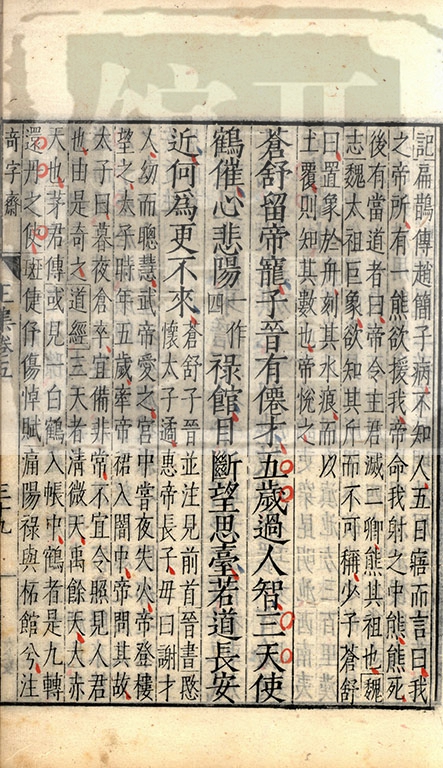 記扁鵲傳趙簡子病不知人五日寤而言曰我
之帝所有一熊欲援我帝命我射之中熊熊死
後有當道者曰帝令主君滅二卿熊其祖也魏
志魏太祖巨象欲知其斤而不可稱少子蒼舒
曰置象於舟刻其水痕而以
土覆則知其數也帝悅之
蒼舒留帝寵子晉有僊才五歲過人智三天使
鶴催心悲陽一作四祿館目斷望思臺若道長安
近何為更不來蒼舒子晉並注見前首晉書愍
懷太子遹惠帝長子母曰謝才
人幼而聰慧武帝愛之宮中嘗夜失火帝登樓
望之太子時年五歲牽帝裾入闇中帝問其故
太子曰暮夜倉卒宜備非常不宜令照見人君
也由是奇之道經三天者清微天禹餘天大赤
天也茅君傳或見白鶴入帳中鶴者是九轉
還丹之使班倢伃傷悼賦痛陽祿與柘館兮注
奇字齋 王集卷五 三十九